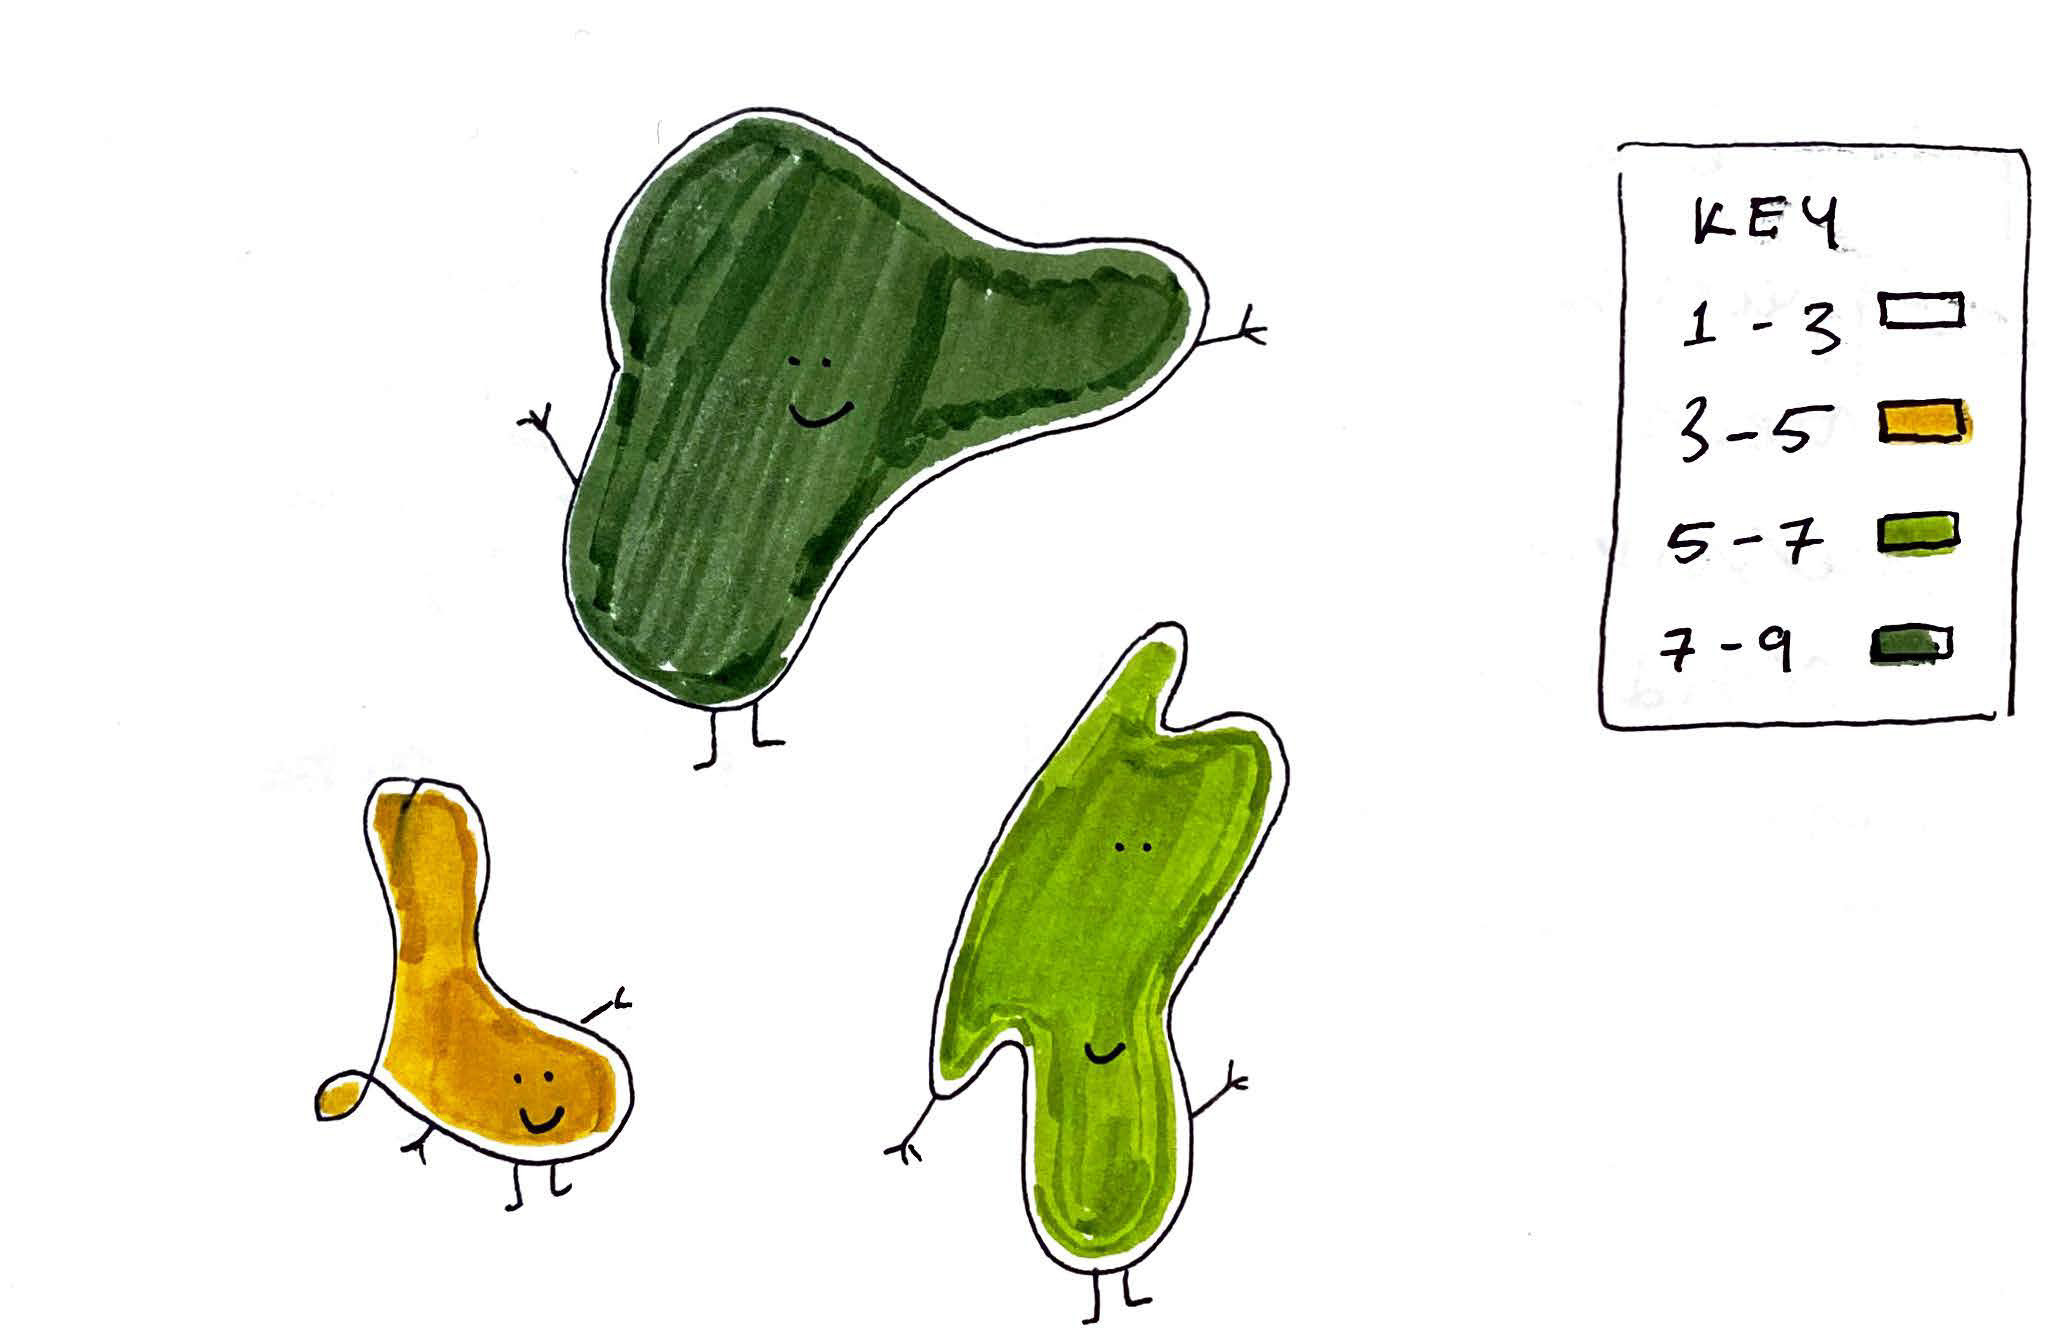 KEY
1 - 3
3 - 5
5 - 7
7 - 9